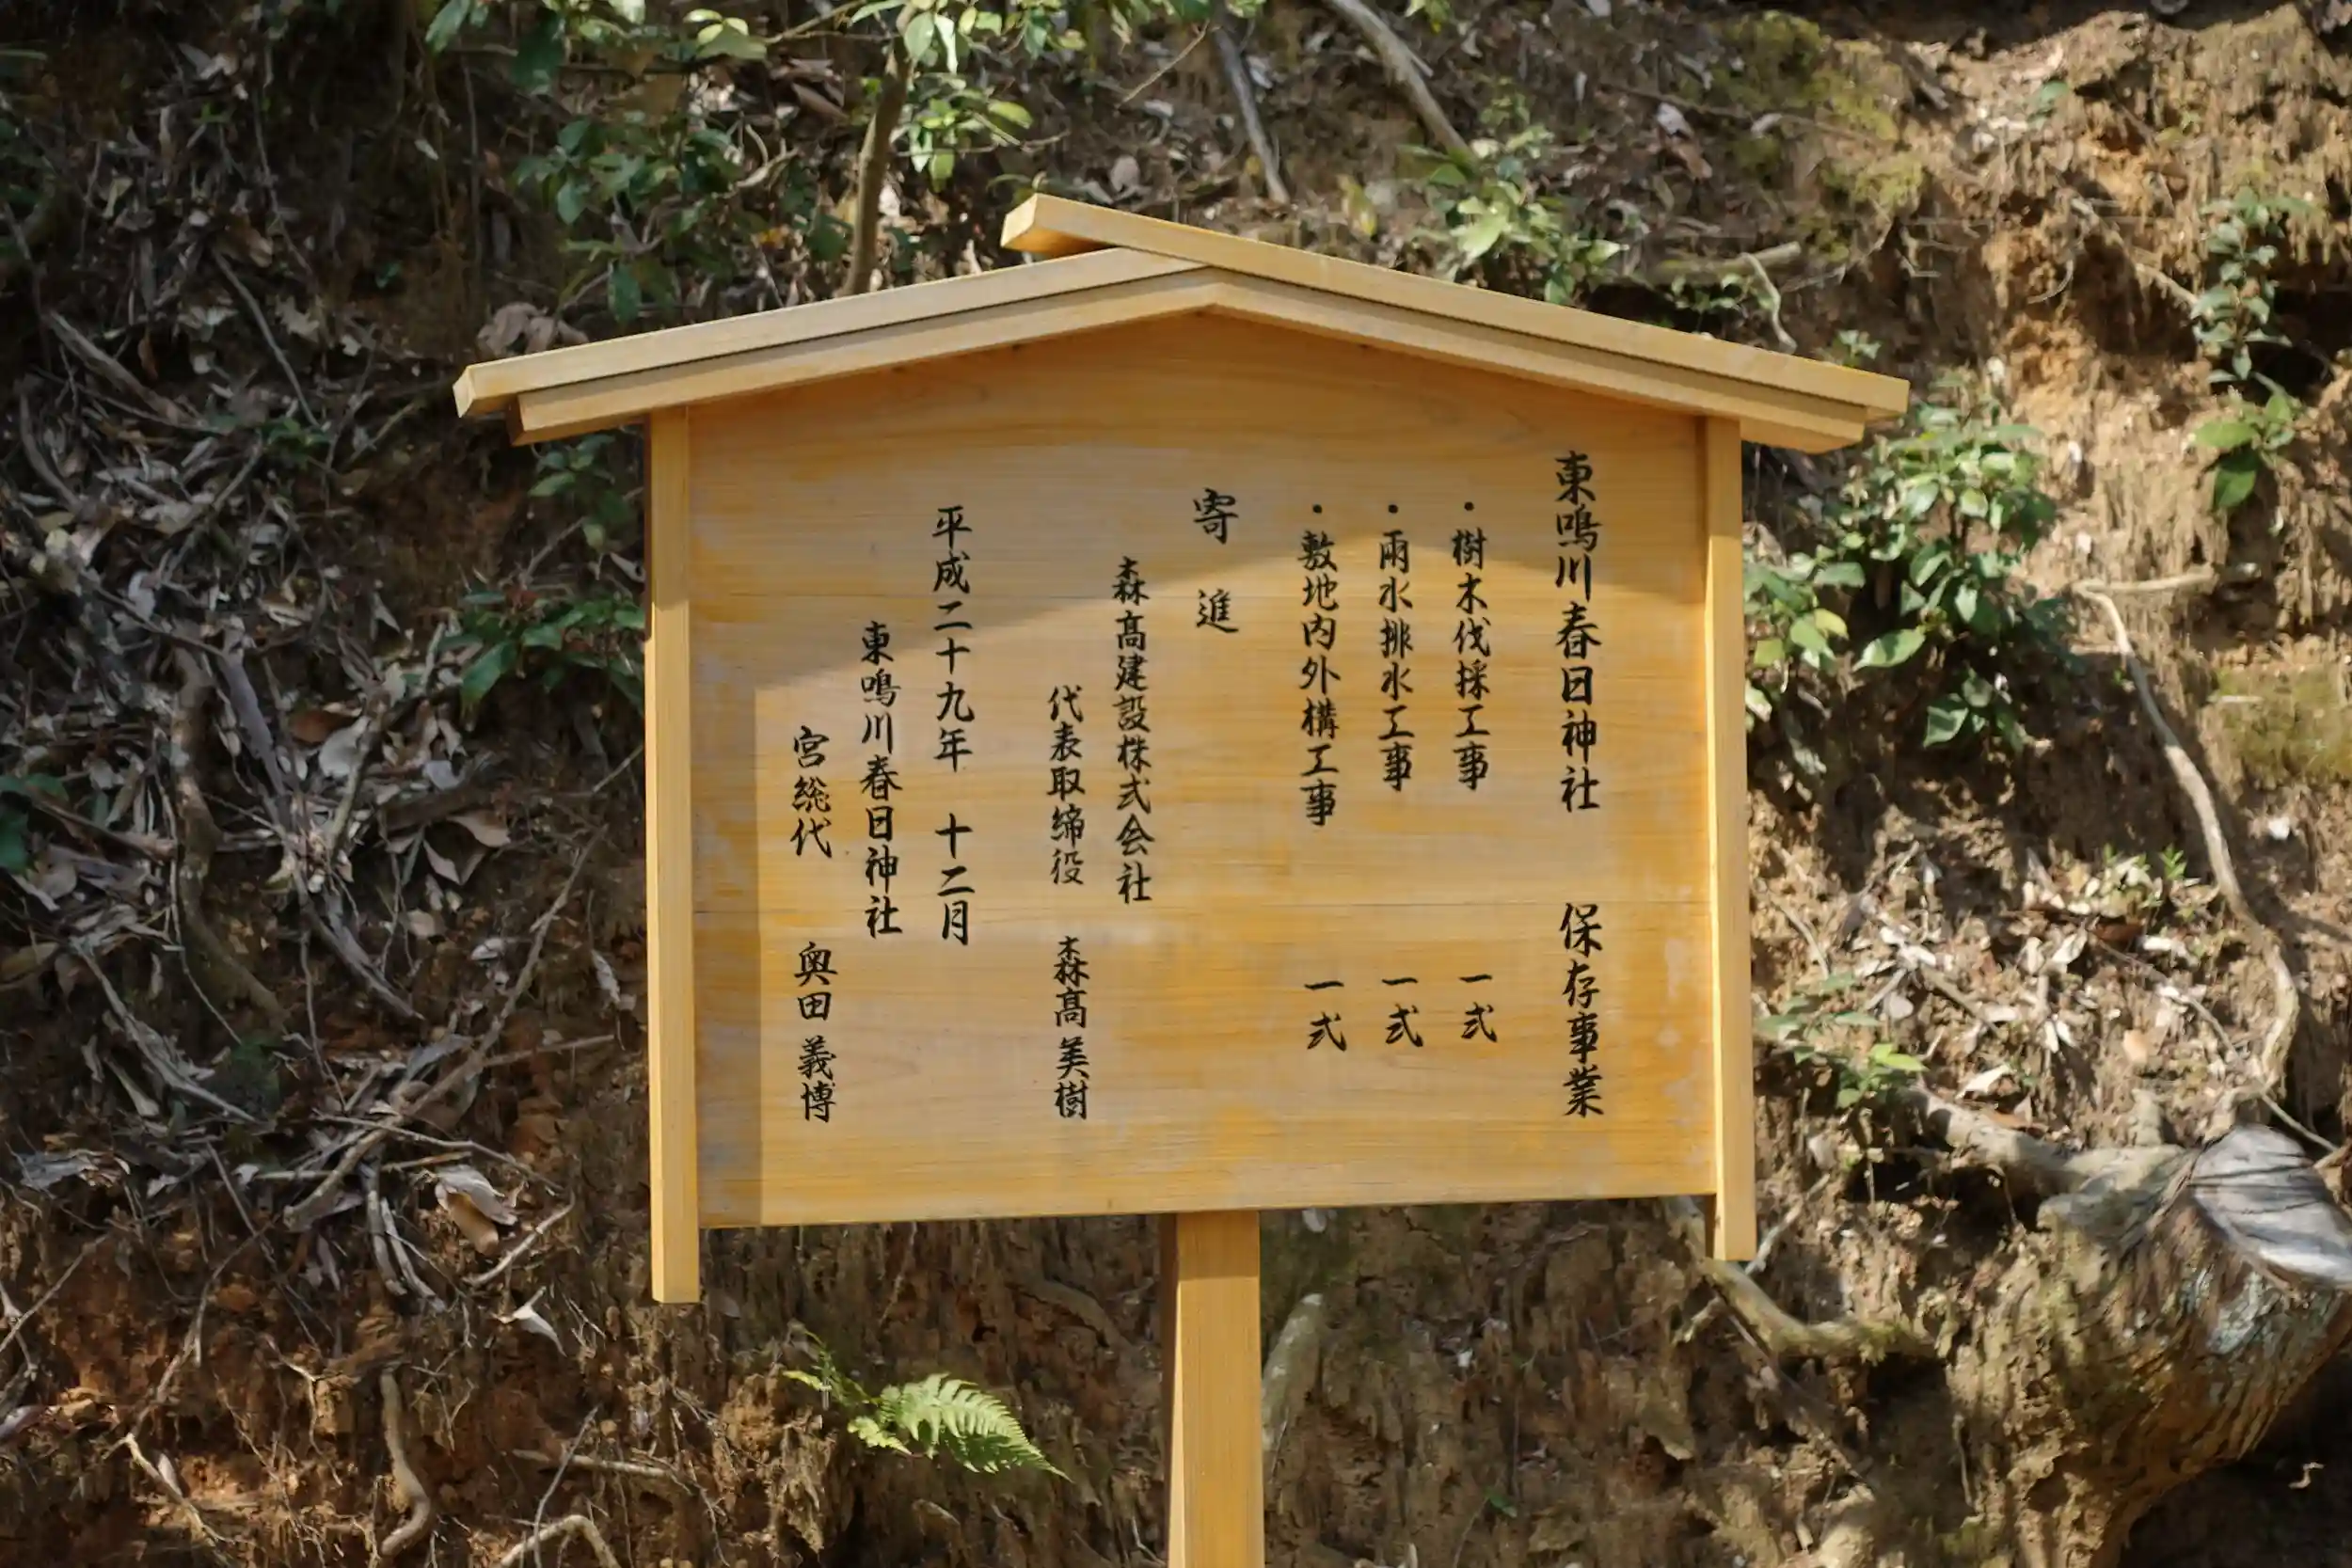 東鳴川春日神社　保存事業
・樹木伐採工事　一式
・雨水排水工事　一式
・敷地内外構工事　一式
寄進
森髙建設株式会社
代表取締役　森髙美樹
平成二十九年　十二月
東鳴川春日神社
宮総代　奥田義博